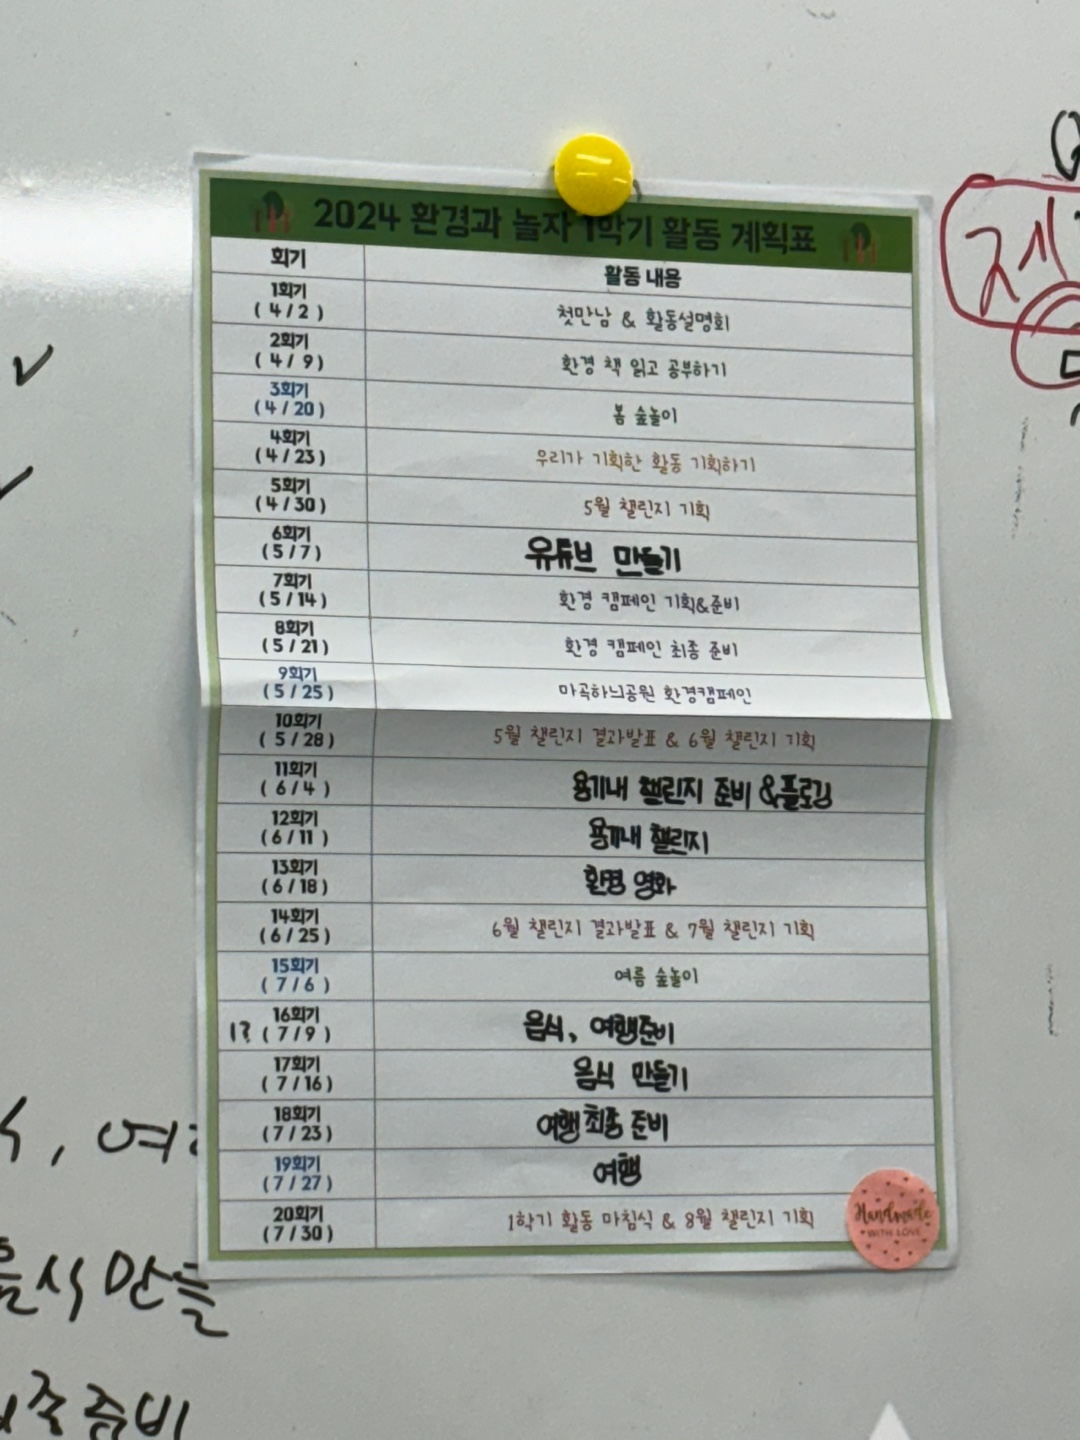 2024 환경과 놀자 1학기 활동 계획표
회기
활동 내용
1회기
( 4 / 2 )
첫만남 & 활동설명회
2회기
( 4 / 9 )
환경 책 읽고 공부하기
3회기
( 4 / 20 )
봄 숲놀이
4회기
( 4 / 23 )
우리가 기획한 활동 기획하기
5회기
( 4 / 30 )
5월 챌린지 기획
6회기
( 5 / 7 )
유튜브 만들기
7회기
( 5 / 14 )
환경 캠페인 기획&준비
8회기
( 5 / 21 )
환경 캠페인 최종 준비
9회기
( 5 / 25 )
마곡하늬공원 환경캠페인
10회기
( 5 / 28 )
5월 챌린지 결과발표 & 6월 챌린지 기획
11회기
( 6 / 4 )
용기내 챌린지 준비 &플로깅
12회기
( 6 / 11 )
용기내 챌린지
13회기
( 6 / 18 )
환경 영화
14회기
( 6 / 25 )
6월 챌린지 결과발표 & 7월 챌린지 기획
15회기
( 7 / 6 )
여름 숲놀이
16회기
1? ( 7 / 9 )
음식, 여행준비
17회기
( 7 / 16 )
음식 만들기
18회기
( 7 / 23 )
여행 최종 준비
19회기
( 7 / 27 )
여행
20회기
( 7 / 30 )
1학기 활동 마침식 & 8월 챌린지 기획
Handmade
WITH LOVE
음식 만들
준비